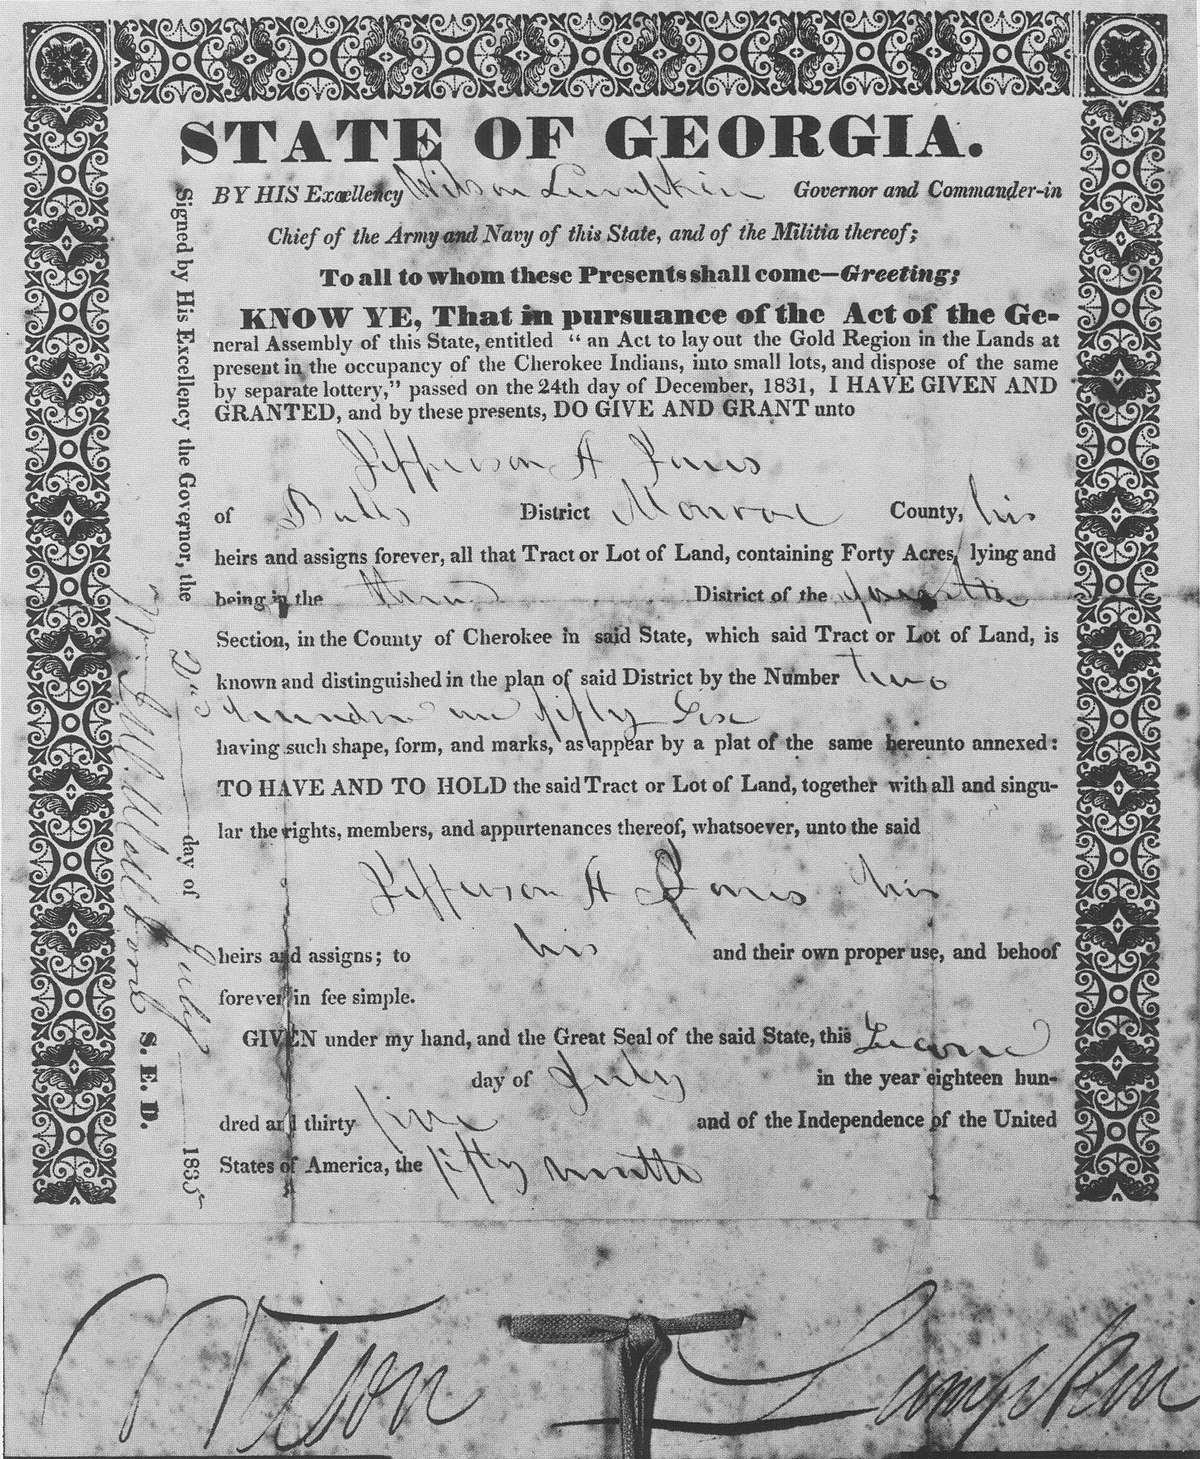 STATE OF GEORGIA.
BY HIS Excellency Wilson Lumpkin Governor and Commander-in
Chief of the Army and Navy of this State, and of the Militia thereof;
To all to whom these Presents shall come—Greeting;
KNOW YE, That in pursuance of the Act of the Ge-
neral Assembly of this State, entitled “ an Act to lay out the Gold Region in the Lands at
present in the occupancy of the Cherokee Indians, into small lots, and dispose of the same
by separate lottery,” passed on the 24th day of December, 1831, I HAVE GIVEN AND
GRANTED, and by these presents, DO GIVE AND GRANT unto
Jefferson A
of District Monroe County, his
heirs and assigns forever, all that Tract or Lot of Land, containing Forty Acres, lying and
being in the District of the fourth
Section, in the County of Cherokee in said State, which said Tract or Lot of Land, is
known and distinguished in the plan of said District by the Number two
hundred and fifty six
having such shape, form, and marks, as appear by a plat of the same hereunto annexed:
TO HAVE AND TO HOLD the said Tract or Lot of Land, together with all and singu-
lar the rights, members, and appurtenances thereof, whatsoever, unto the said
Jefferson A his
heirs and assigns; to his and their own proper use, and behoof
forever in fee simple.
GIVEN under my hand, and the Great Seal of the said State, this Second
day of July in the year eighteen hun-
dred and thirty five and of the Independence of the United
States of America, the fifty ninth
Signed by His Excellency the Governor, the
2nd day of July 1835
S. E. D.
Wilson Lumpkin